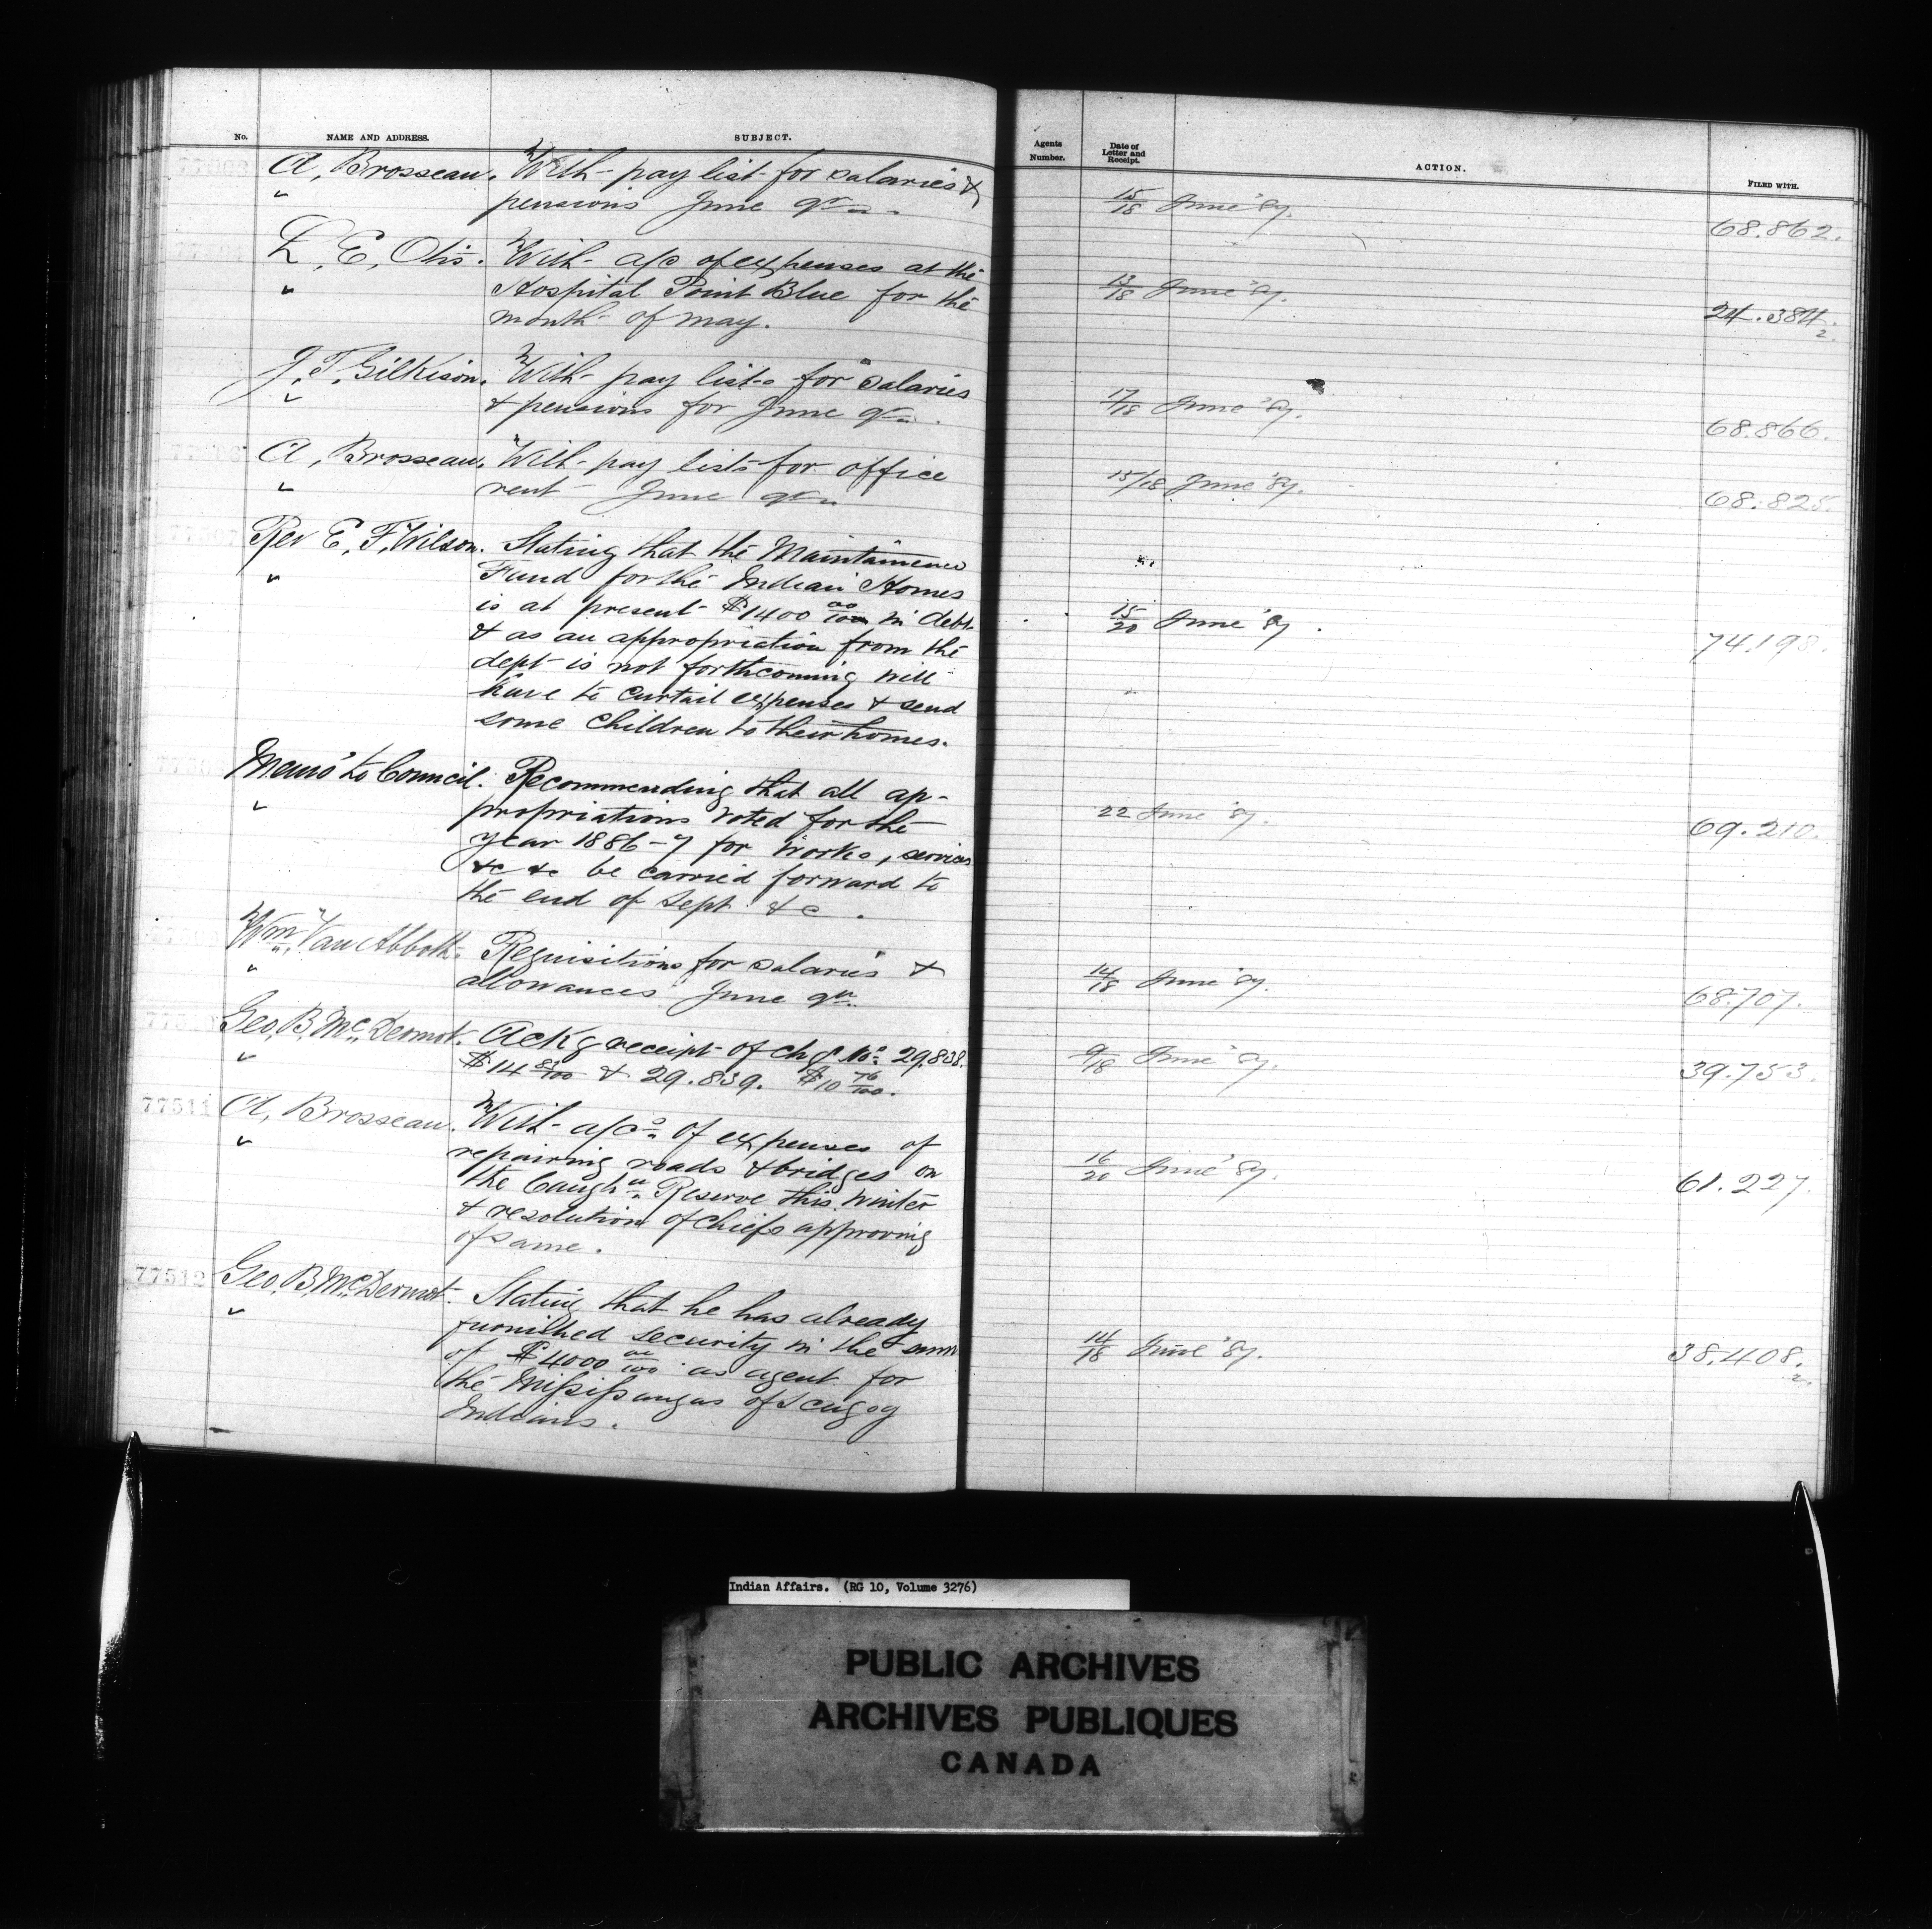 No. NAME AND ADDRESS. SUBJECT. Agents Number. Date of Letter and Receipt. ACTION. FILED WITH.
A, Brosseau. With pay list for salaries &
" pensions June qr 15/18 June '87. 68.862.
L, E, Otis. With a/c of expenses at the
" Hospital Point Blue for the 13/18 June '87.
month of May. 24.384/2
J, T, Gilkison. With pay lists for salaries
" & pensions for June qr. 17/18 June '87. 68.866.
A, Brosseau. With pay lists for office
" rent June qr 15/18 June '87. 68.825.
77507 Rev E, F, Wilson. Stating that the Maintainence
" Fund for the Indian Homes
is at present $1400 00/100 in debt 15/20 June '87.
& as an appropriation from the 74.198.
dept is not forthcoming will
have to curtail expenses & send
some children to their homes.
Memo to Council. Recommending that all ap-
" propriations voted for the 22 June '87. 69.210.
year 1886-7 for works, services
&c &c be carried forward to
the end of Sept &c.
Wm Van Abbott. Requisitions for salaries &
" allowances June qr. 14/18 June '87. 68.707.
Geo, B, McDermot. Ackg receipt of chqs No 29.838.
" $14 /100 & 29.839. $10 76/100. 9/18 June '87. 39.753.
77511 A, Brosseau. With a/cs of expenses of
" repairing roads & bridges on 16/20 June '87.
the Caughn Reserve this winter 61.227.
& resolution of chiefs approving
of same.
77512 Geo, B, McDermot. Stating that he has already
" furnished security in the sum
of $4000 00/100 as agent for 14/18 June '87. 38.408/2
the Missisaugas of Scugog
Indians.
Indian Affairs. (RG 10, Volume 3276)
PUBLIC ARCHIVES
ARCHIVES PUBLIQUES
CANADA